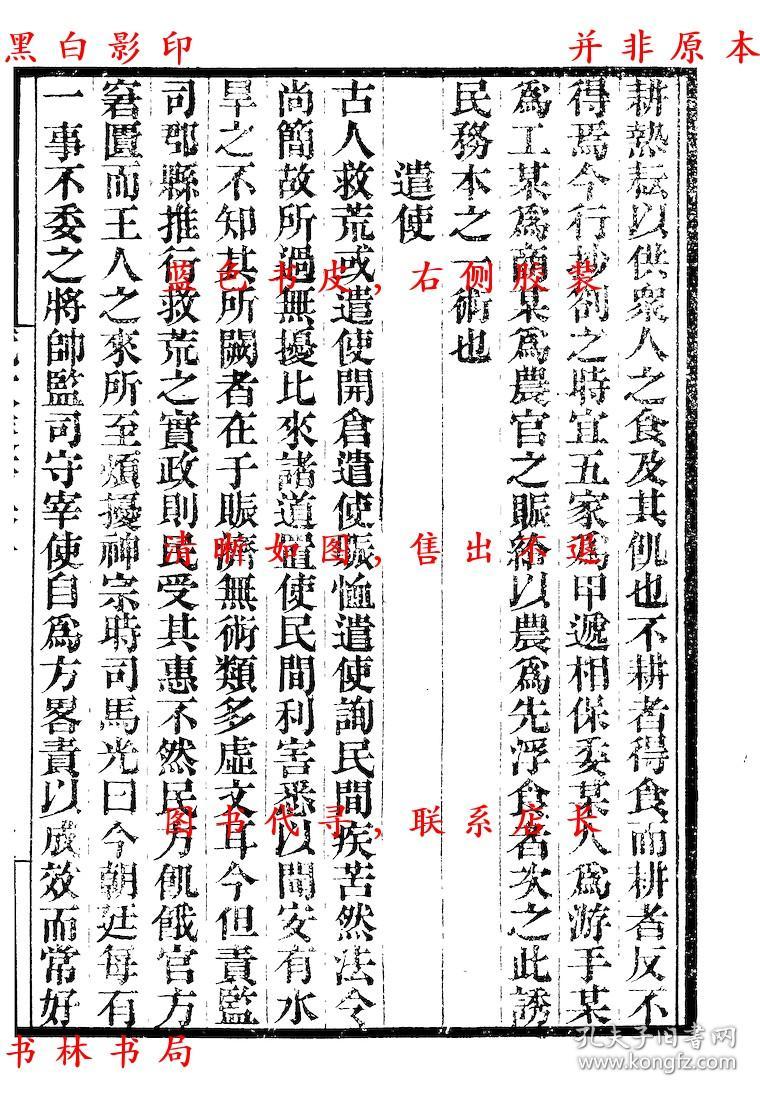 黑白影印
并非原本
耕熱耘以供衆人之食及其飢也不耕者得食而耕者反不
得焉今行抄劄之時宜五家爲甲遞相保委某人爲游手某
爲工某爲商某爲農官之賑給以農爲先浮食者次之此誘
民務本之一術也
遣使
古人救荒或遣使開倉遣使賑恤遣使詢民間疾苦然法令
尚簡故所過無擾比來諸道置使民間利害悉以聞安有水
旱之不知其所闕者在于賑濟無術類多虛文耳今但責監
司郡縣推行救荒之實政則民受其惠不然民方飢餓官方
窘匱而王人之來所至煩擾神宗時司馬光曰今朝廷每有
一事不委之將帥監司守宰使自爲方畧責以成效而常好
蓝色书皮，右侧胶装
清晰如图，售出不退
图书代寻，联系店长
书林书局
孔夫子旧书网
www.kongfz.com